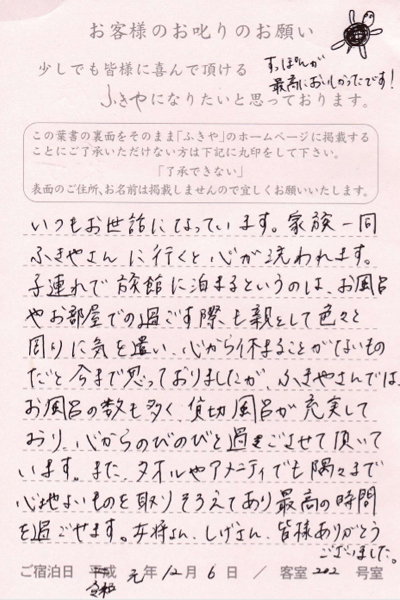 お客様のお叱りのお願い
すっぽんが
最高においしかったです!
少しでも皆様に喜んで頂ける
ふきやになりたいと思っております。
この葉書の裏面をそのまま「ふきや」のホームページに掲載する
ことにご了承いただけない方は下記に丸印をして下さい。
「了承できない」
表面のご住所、お名前は掲載しませんので宜しくお願いいたします。
いつもお世話になっています。家族一同
ふきやさんに行くと心が洗われます。
子連れで旅館に泊まるというのは、お風呂
やお部屋での過ごす際も親として色々と
周りに気を遣い、心から休まることがないもの
だと今まで思っておりましたが、ふきやさんでは、
お風呂の数も多く貸切風呂が充実して
おり、心からのびのびと過ごさせて頂いて
います。また、タオルやアメニティでも隅々まで
心地よいものを取りそろえてあり最高の時間
を過ごせます。女将さん、しげさん、皆様ありがとう
ございました。
ご宿泊日 平成 元年 12月 6日 / 客室 202 号室
令和